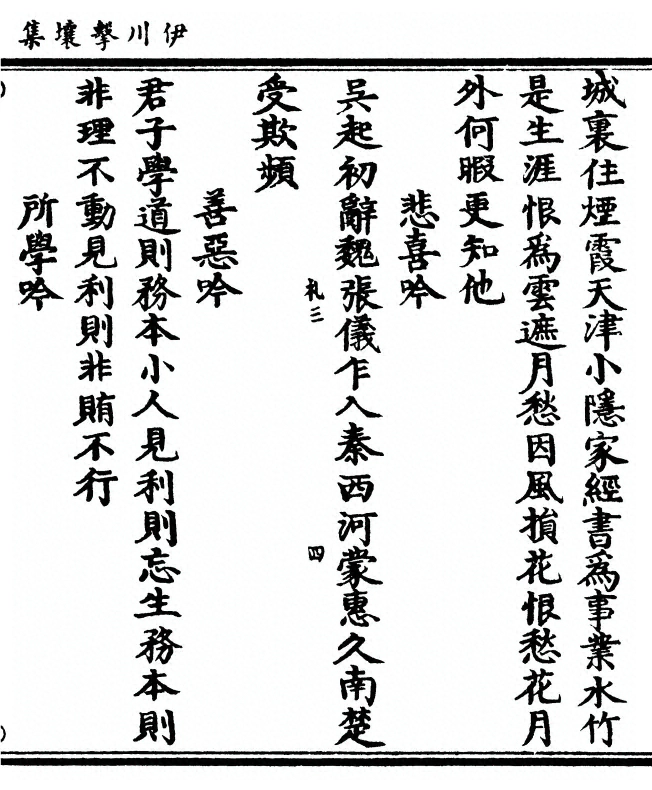 伊川擊壤集
城裏住煙霞天津小隱家經書爲事業水竹
是生涯恨爲雲遮月愁因風損花恨愁花月
外何暇更知他
悲喜吟
吳起初辭魏張儀乍入秦西河蒙惠久南楚
札三
四
受欺頻
善惡吟
君子學道則務本小人見利則忘生務本則
非理不動見利則非賄不行
所學吟